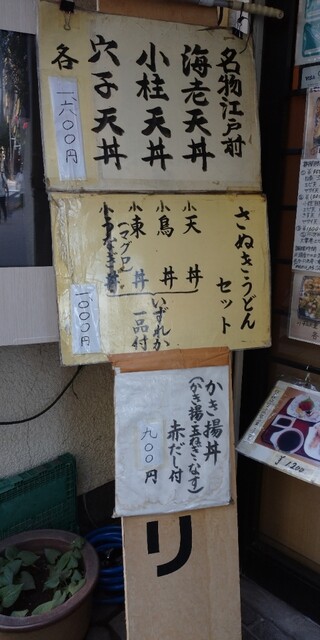 名物江戸前
海老天丼
小柱天丼
穴子天丼
各
一六００円
さぬきうどん
セット
小天丼
小鳥丼
小東丼
(マグロ)
小うなぎ丼
いずれか
一品付
一０００円
かき揚丼
(かき揚玉ねぎ・なす)
赤だし付
九００円
り
¥1200